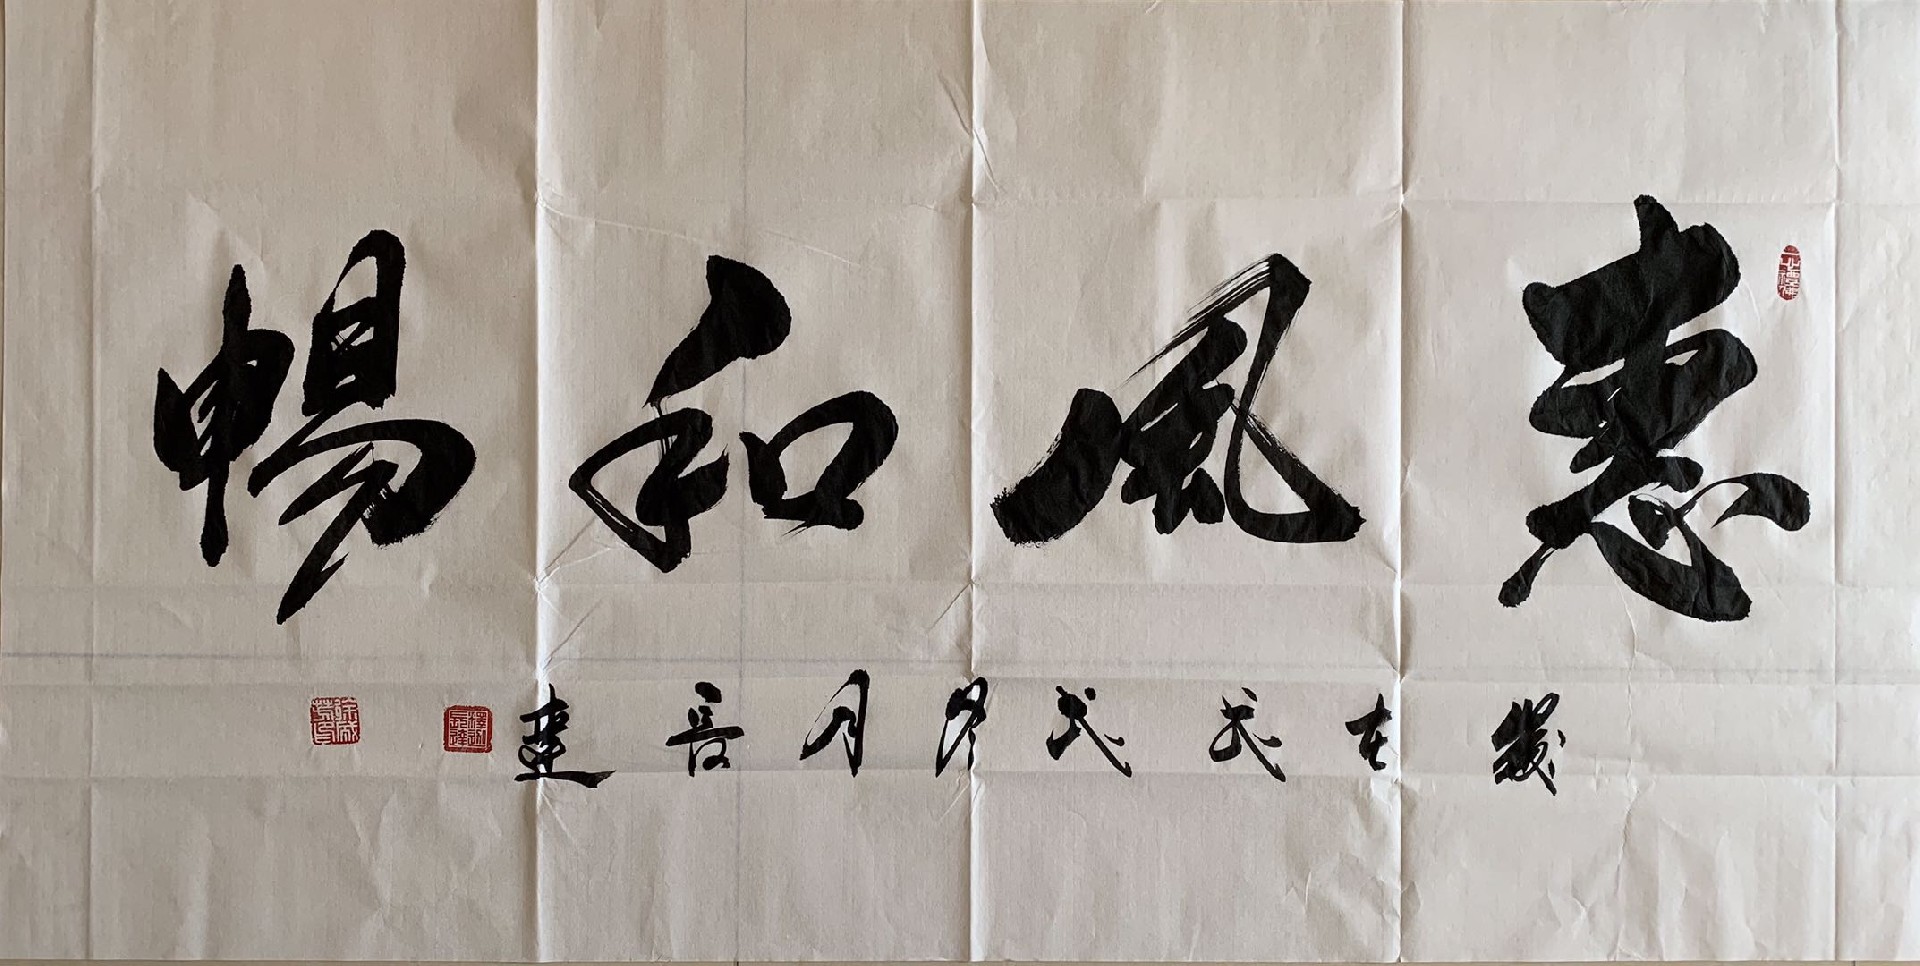 惠風和暢
歲在戊戌冬月長達